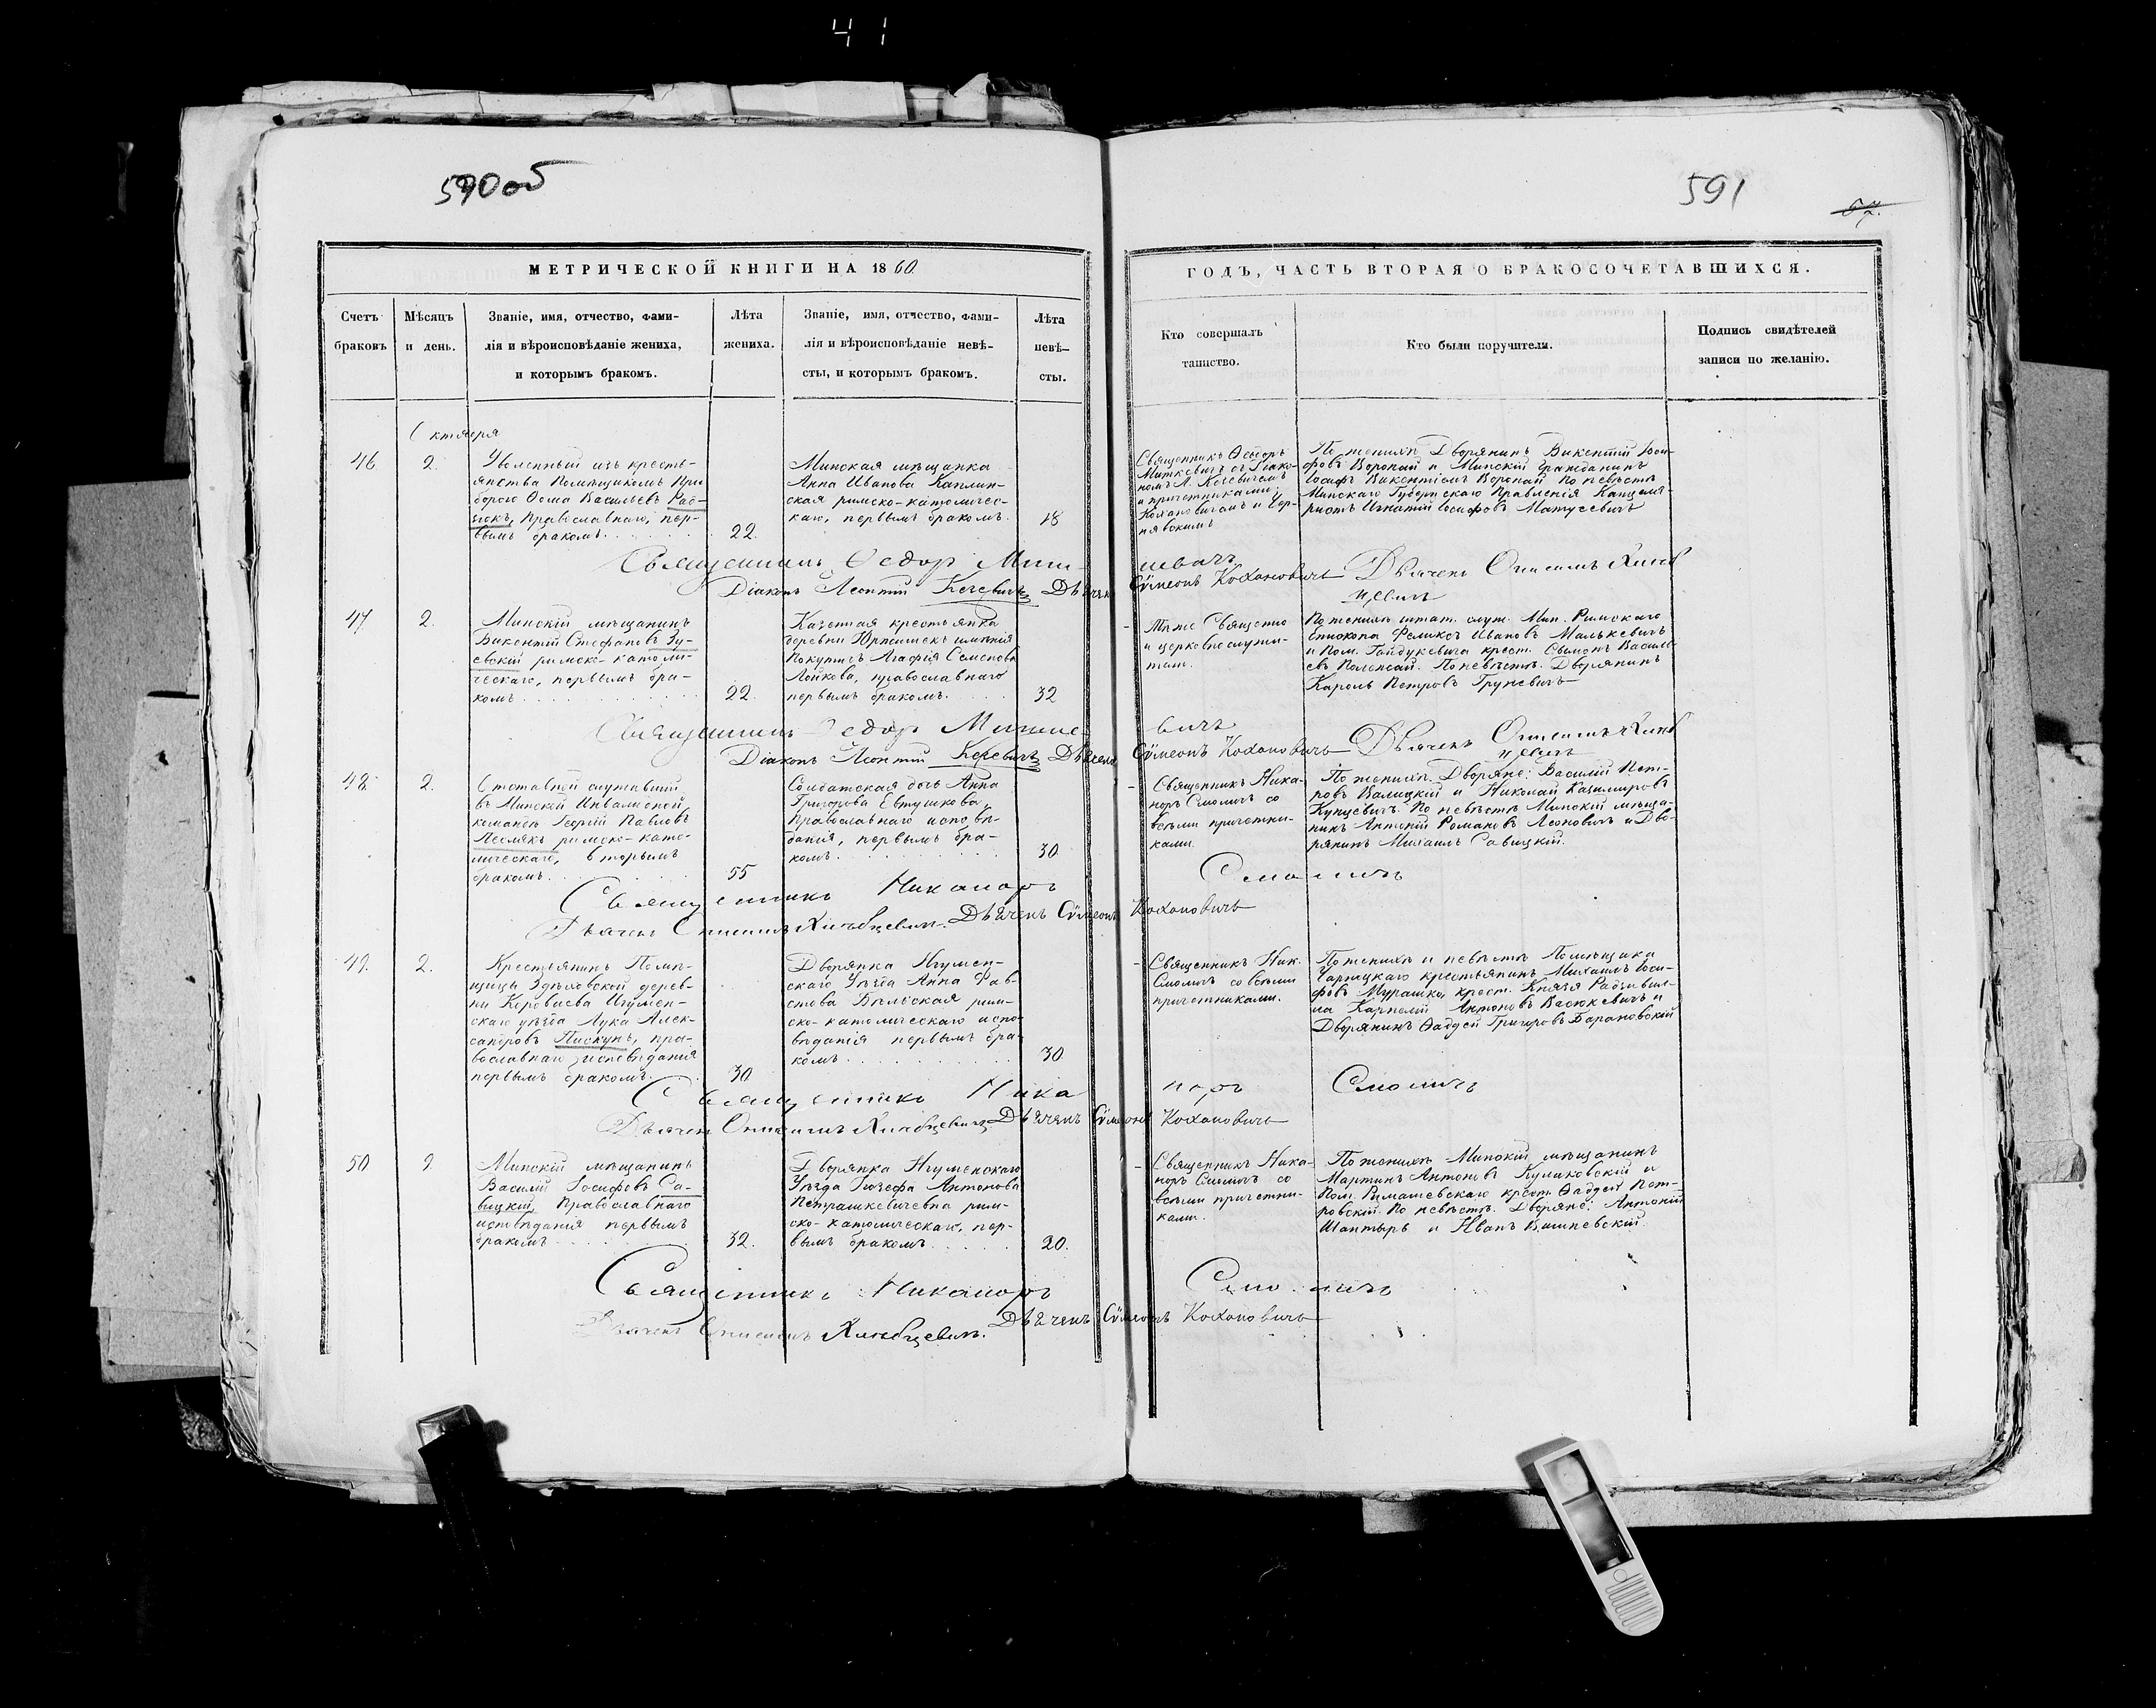 41
590об
591
57.
МЕТРИЧЕСКОЙ КНИГИ НА 1860
ГОДЪ, ЧАСТЬ ВТОРАЯ О БРАКОСОЧЕТАВШИХСЯ.
Счетъ
браковъ
Мѣсяцъ
и день.
Званіе, имя, отчество, фами-
лія и вѣроисповѣданіе жениха,
и которымъ бракомъ.
Лѣта
жениха.
Званіе, имя, отчество, фами-
лія и вѣроисповѣданіе невѣ-
сты, и которымъ бракомъ.
Лѣта
невѣ-
сты.
Кто совершалъ
таинство.
Кто были поручители.
Подпись свидѣтелей
записи по желанію.
Октября
46
2.
Уволенный изъ кресть-
янства Помѣщикомъ При
борою Ѳома Васильевъ
Православнаго, пер-
вымъ бракомъ
22.
Минская мѣщанка
Анна Иванова Каплин-
ская римско-католичес-
каго, первымъ бракомъ.
18
Священникъ Ѳеодоръ
Миткевичъ съ Діако-
номъ Л. Кечевичемъ
и причетниками:
Кохановичемъ и
По женихѣ Дворянинъ Викентій Іоси-
фовъ Воронай и Минскій Гражданинъ
Іосифъ Викентіевъ Воронай По невѣстѣ
Минскаго Губернскаго Правленія Канцеля-
ристъ Игнатій Іосифовъ Матусевичъ
Священникъ Ѳедор Митке-
вичъ
Діаконъ Леонтій Кечевичъ Дьячекъ Сѵмеонъ Кохановичъ Дьячекъ Онисимъ
47
2.
Минскій мѣщанинъ
Викентій Стефановъ Зу-
евскій римско-католи-
ческаго, первымъ бра-
комъ
22.
Казенная крестьянка
деревни имѣнія
Агафія Семенова
Лойкова, православнаго
первымъ бракомъ.
32
Тѣже Священно
и церковнослужи-
тели.
По женихѣ штат. служ. Мин. Римскаго
Епископа Феликсъ Ивановъ Малькевичъ
и Пом. Гайдукевича крест. Сымонъ Василь-
евъ По невѣстѣ. Дворянинъ
Кароль Петровъ Груневичъ
Священникъ Ѳедор Митке-
вичъ
Діаконъ Леонтій Кечевичъ Дьячекъ Сѵмеонъ Кохановичъ Дьячекъ Онисимъ
48.
2.
Отставной служившій
въ Минской Инвалидной
командѣ Георгій Павловъ
Леснякъ римско-като-
лическаго, вторымъ
бракомъ.
55
Солдатская дочь Анна
Григорова Евтушкова,
Православнаго исповѣ-
данія, первымъ бра-
комъ.
30
Священникъ Ника-
норъ Смоличъ со
всѣми причетни-
ками.
По женихѣ. Дворяне: Василій Пет-
ровъ Валицкій и Николай Казимировъ
Купцевичъ. По невѣстѣ Минскій мѣща-
нинъ Антоній Романовъ Леоновичъ и Дво-
рянинъ Михаилъ Савицкій.
Священникъ Никаноръ Смоличъ
Дьячекъ Онисимъ Дьячекъ Сѵмеонъ Кохановичъ
49.
2.
Крестьянинъ Помѣ-
щицы Здѣховской дерев-
ни Короваева Игумен-
скаго уѣзда Лука Алек-
сандровъ Пискунъ, пра-
вославнаго исповѣданія
первымъ бракомъ.
30
Дворянка Игумен-
скаго Уѣзда Анна Фав-
стова Бѣльская рим-
ско-католическаго испо-
вѣданія первымъ бра-
комъ.
30
Священникъ Ник.
Смоличъ со всѣми
причетниками.
По женихѣ и невѣстѣ Помѣщика
Чарнцкаго крестьянинъ Михаилъ Іоси-
фовъ Мурашко, крест. Князя Радзивил-
ла Карпелій Антоновъ Васюкевичъ и
Дворянинъ Ѳаддей Григоровъ Барановскій
Священникъ Никаноръ Смоличъ
Дьячекъ Онисимъ Дьячекъ Сѵмеонъ Кохановичъ
50
2
Минскій мѣщанинъ
Василій Іосифовъ Са-
вицкій, Православнаго
исповѣданія первымъ
бракомъ
32.
Дворянка Игуменскаго
Уѣзда Іюзефа Антонова
Петрашкевичевна рим-
ско-католическаго, пер-
вымъ бракомъ
20.
Священникъ Ника-
норъ Смоличъ со
всѣми причетни-
ками.
По женихѣ Минскій мѣщанинъ
Мартинъ Антоновъ Куликовскій и
Пом. Римашевскаго крест. Ѳаддей Пет-
ровскій. По невѣстѣ. Дворяне: Антоній
Шантыръ и Иванъ Вишневскій.
Священникъ Никаноръ Смоличъ
Дьячекъ Онисимъ Дьячекъ Сѵмеонъ Кохановичъ